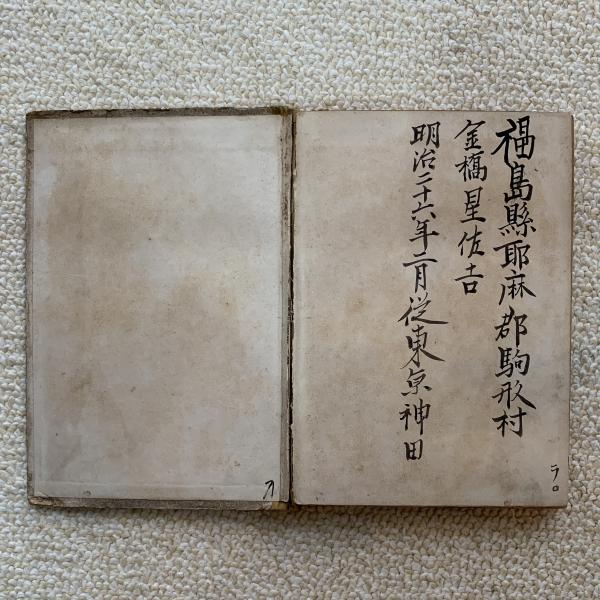 福島縣耶麻郡駒形村
金橋星佐吉
明治二十六年二月従東京神田